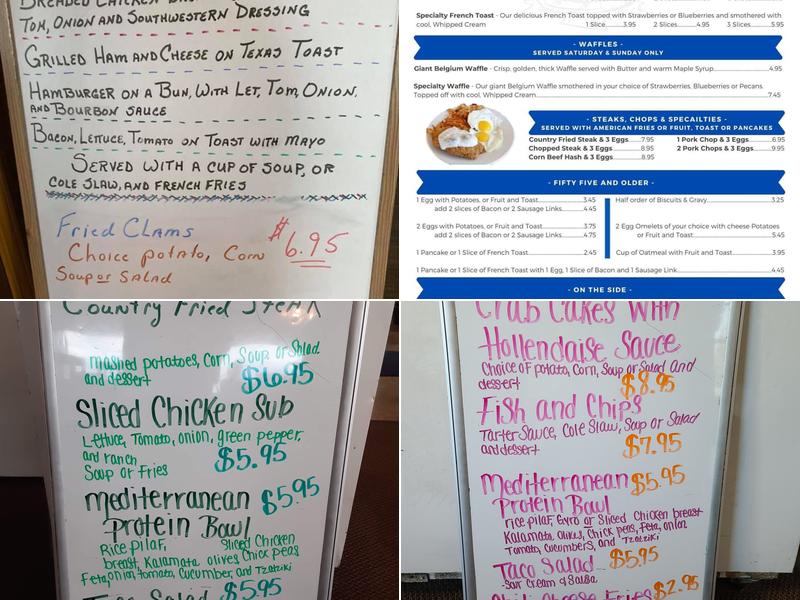 BREADED CHICKEN
TOM, ONION AND SOUTHWESTERN DRESSING
GRILLED HAM AND CHEESE ON TEXAS TOAST
HAMBURGER ON A BUN, WITH LET, TOM, ONION,
AND BOURBON SAUCE
BACON, LETTUCE, TOMATO ON TOAST WITH MAYO
SERVED WITH A CUP OF SOUP, OR
COLE SLAW, AND FRENCH FRIES
Fried Clams
Choice potato, Corn
Soup or Salad
$6.95
Specialty French Toast - Our delicious French Toast topped with Strawberries or Blueberries and smothered with
cool, Whipped Cream 1 Slice...3.95 2 Slices...4.95 3 Slices...5.95
- WAFFLES -
SERVED SATURDAY & SUNDAY ONLY
Giant Belgium Waffle - Crisp, golden, thick Waffle served with Butter and warm Maple Syrup...4.95
Specialty Waffle - Our giant Belgium Waffle smothered in your choice of Strawberries, Blueberries or Pecans.
Topped off with cool, Whipped Cream...7.45
- STEAKS, CHOPS & SPECIALTIES -
SERVED WITH AMERICAN FRIES OR FRUIT, TOAST OR PANCAKES
Country Fried Steak & 3 Eggs...7.95 1 Pork Chop & 3 Eggs...6.95
Chopped Steak & 3 Eggs...8.95 2 Pork Chops & 3 Eggs...9.95
Corn Beef Hash & 3 Eggs...8.95
- FIFTY FIVE AND OLDER -
1 Egg with Potatoes, or Fruit and Toast...3.45
add 2 slices of Bacon or 2 Sausage Links...4.45
2 Eggs with Potatoes, or Fruit and Toast...3.75
add 2 slices of Bacon or 2 Sausage Links...4.75
1 Pancake or 1 Slice of French Toast...2.45
Half order of Biscuits & Gravy...3.25
2 Egg Omelets of your choice with cheese Potatoes
or Fruit and Toast...5.45
Cup of Oatmeal with Fruit and Toast...3.95
1 Pancake or 1 Slice of French Toast with 1 Egg, 1 Slice of Bacon and 1 Sausage Link...4.45
- ON THE SIDE -
Country Fried Steak
mashed potatoes, Corn, Soup or Salad
and dessert $6.95
Sliced Chicken Sub
Lettuce, Tomato, onion, green pepper,
and ranch $5.95
Soup or Fries
mediterranean $5.95
Protein Bowl
Rice pilaf, Sliced Chicken
breast, Kalamata olives Chick peas
Feta, onion, tomato, Cucumber, and Tzatziki
Taco Salad $5.95
Crab Cakes With
Hollendaise Sauce
Choice of potato, Corn, Soup or Salad and
dessert $8.95
Fish and Chips
Tarter Sauce, Cole Slaw, Soup or Salad
and dessert $7.95
Mediterranean $5.95
Protein Bowl
rice pilaf, Gyro or Sliced Chicken breast
Kalamata olives, Chick peas, Feta, onion
Tomato, Cucumbers, and Tzatziki
Taco Salad $5.95
-Sour Cream & Salsa
Chili Cheese Fries $2.95